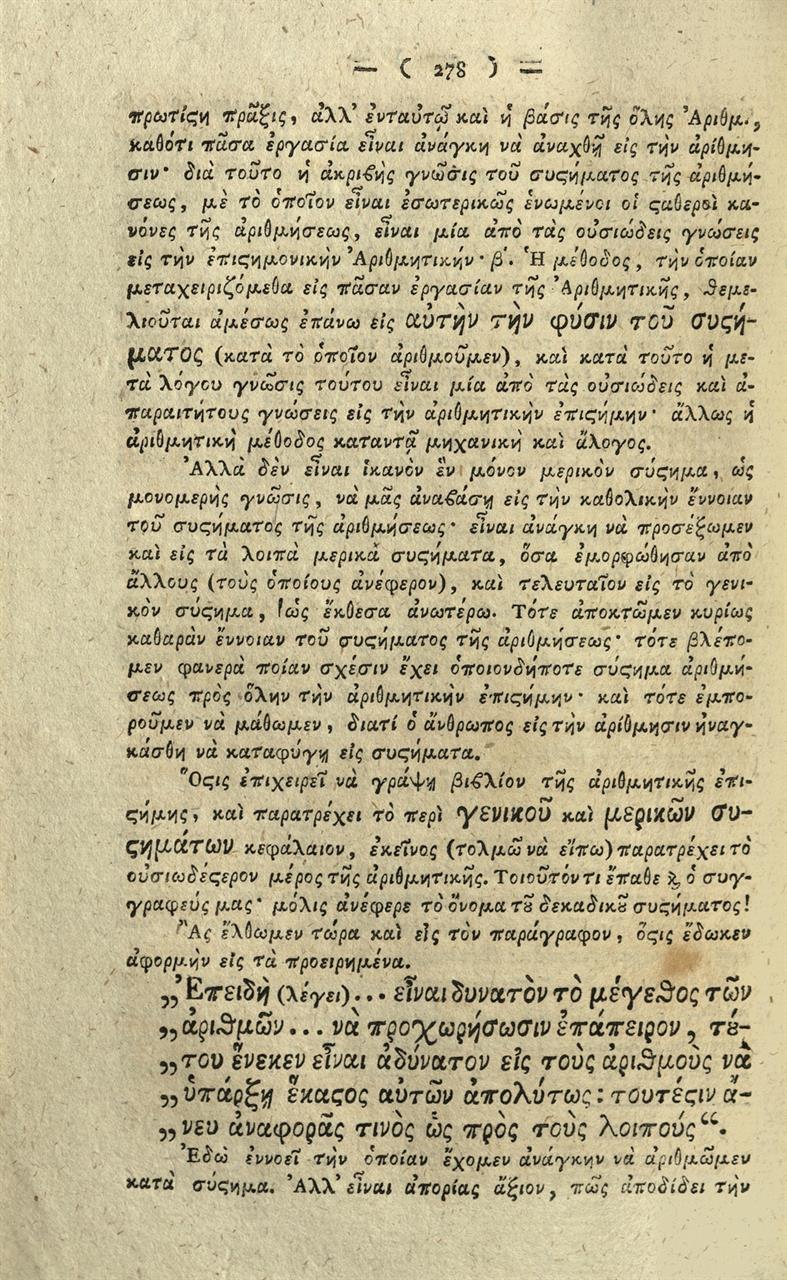 — ( 278 ) =
πρωτίϛη πρᾶξις, ἀλλ' ἐνταυτῷ καὶ ἡ βάσις τῆς ὅλης Ἀριθμ.,
καθότι πᾶσα ἐργασία εἶναι ἀνάγκη νὰ ἀναχθῇ εἰς τὴν ἀρίθμη-
σιν· διὰ τοῦτο ἡ ἀκριβὴς γνῶσις τοῦ συϛήματος τῆς ἀριθμή-
σεως, μὲ τὸ ὁποῖον εἶναι ἐσωτερικῶς ἑνωμένοι οἱ ϛαθεροὶ κα-
νόνες τῆς ἀριθμήσεως, εἶναι μία ἀπὸ τὰς οὐσιώδεις γνώσεις
εἰς τὴν ἐπιϛημονικὴν Ἀριθμητικήν· β΄. Ἡ μέθοδος, τὴν ὁποίαν
μεταχειριζόμεθα εἰς πᾶσαν ἐργασίαν τῆς Ἀριθμητικῆς, θεμε-
λιοῦται ἀμέσως ἐπάνω εἰς αὐτὴν τὴν φύσιν τοῦ συϛή-
ματος (κατὰ τὸ ὁποῖον ἀριθμοῦμεν), καὶ κατὰ τοῦτο ἡ με-
τὰ λόγου γνῶσις τούτου εἶναι μία ἀπὸ τὰς οὐσιώδεις καὶ ἀ-
παραιτήτους γνώσεις εἰς τὴν ἀριθμητικὴν ἐπιϛήμην· ἄλλως ἡ
ἀριθμητικὴ μέθοδος καταντᾷ μηχανικὴ καὶ ἄλογος.
Ἀλλὰ δὲν εἶναι ἱκανὸν ἓν μόνον μερικὸν σύϛημα, ὡς
μονομερὴς γνῶσις, νὰ μᾶς ἀναβάσῃ εἰς τὴν καθολικὴν ἔννοιαν
τοῦ συϛήματος τῆς ἀριθμήσεως· εἶναι ἀνάγκη νὰ προσέξωμεν
καὶ εἰς τὰ λοιπὰ μερικὰ συϛήματα, ὅσα ἐμορφώθησαν ἀπὸ
ἄλλους (τοὺς ὁποίους ἀνέφερον), καὶ τελευταῖον εἰς τὸ γενι-
κὸν σύϛημα, ὡς ἔκθεσα ἀνωτέρω. Τότε ἀποκτῶμεν κυρίως
καθαρὰν ἔννοιαν τοῦ συϛήματος τῆς ἀριθμήσεως· τότε βλέπο-
μεν φανερὰ ποίαν σχέσιν ἔχει ὁποιονδήποτε σύϛημα ἀριθμή-
σεως πρὸς ὅλην τὴν ἀριθμητικὴν ἐπιϛήμην· καὶ τότε ἐμπο-
ροῦμεν νὰ μάθωμεν, διατί ὁ ἄνθρωπος εἰς τὴν ἀρίθμησιν ἠναγ-
κάσθη νὰ καταφύγῃ εἰς συϛήματα.
Ὅϛις ἐπιχειρεῖ νὰ γράψῃ βιβλίον τῆς ἀριθμητικῆς ἐπι-
ϛήμης, καὶ παρατρέχει τὸ περὶ γενικοῦ καὶ μερικῶν συ-
ϛημάτων κεφάλαιον, ἐκεῖνος (τολμῶ νὰ εἴπω) παρατρέχει τὸ
οὐσιωδέϛερον μέρος τῆς ἀριθμητικῆς. Τοιοῦτόν τι ἔπαθε ϗ ὁ συγ-
γραφεύς μας· μόλις ἀνέφερε τὸ ὄνομα τȣ͂ δεκαδικȣ͂ συϛήματος!
Ἂς ἔλθωμεν τώρα καὶ εἰς τὸν παράγραφον, ὅϛις ἔδωκεν
ἀφορμὴν εἰς τὰ προειρημένα.
„Ἐπειδὴ (λέγει)... εἶναι δυνατὸν τὸ μέγεθος τῶν
„ἀριθμῶν... νὰ προχωρήσωσιν ἐπάπειρον, τό-
„του ἕνεκεν εἶναι ἀδύνατον εἰς τοὺς ἀριθμοὺς νὰ
„ὑπάρξῃ ἕκαϛος αὐτῶν ἀπολύτως: τουτέϛιν ἄ-
„νευ ἀναφορᾶς τινὸς ὡς πρὸς τοὺς λοιπούς“.
Ἐδῶ ἐννοεῖ τὴν ὁποίαν ἔχομεν ἀνάγκην νὰ ἀριθμῶμεν
κατὰ σύϛημα. Ἀλλ' εἶναι ἀπορίας ἄξιον, πῶς ἀποδίδει τὴν